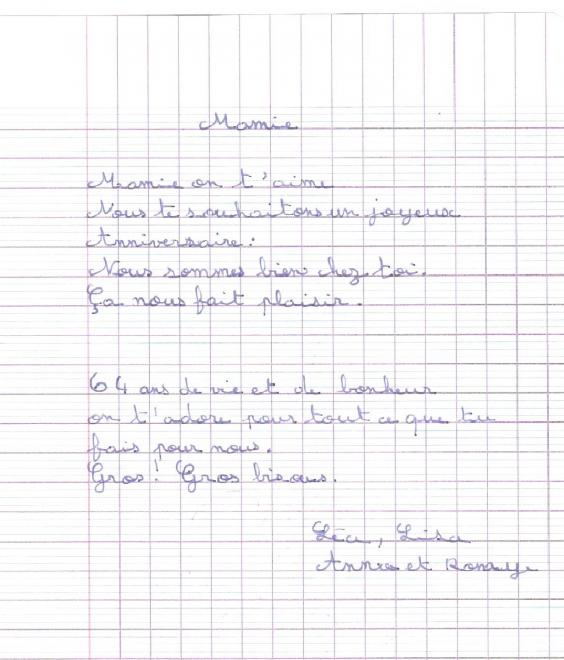 Mamie
Mamie on t'aime
Nous te souhaitons un joyeux
Anniversaire :
Nous sommes bien chez toi.
Ça nous fait plaisir.
64 ans de vie et de bonheur
on t'adore pour tout ce que tu
fais pour nous.
Gros! Gros bisous.
Léa, Lisa
et